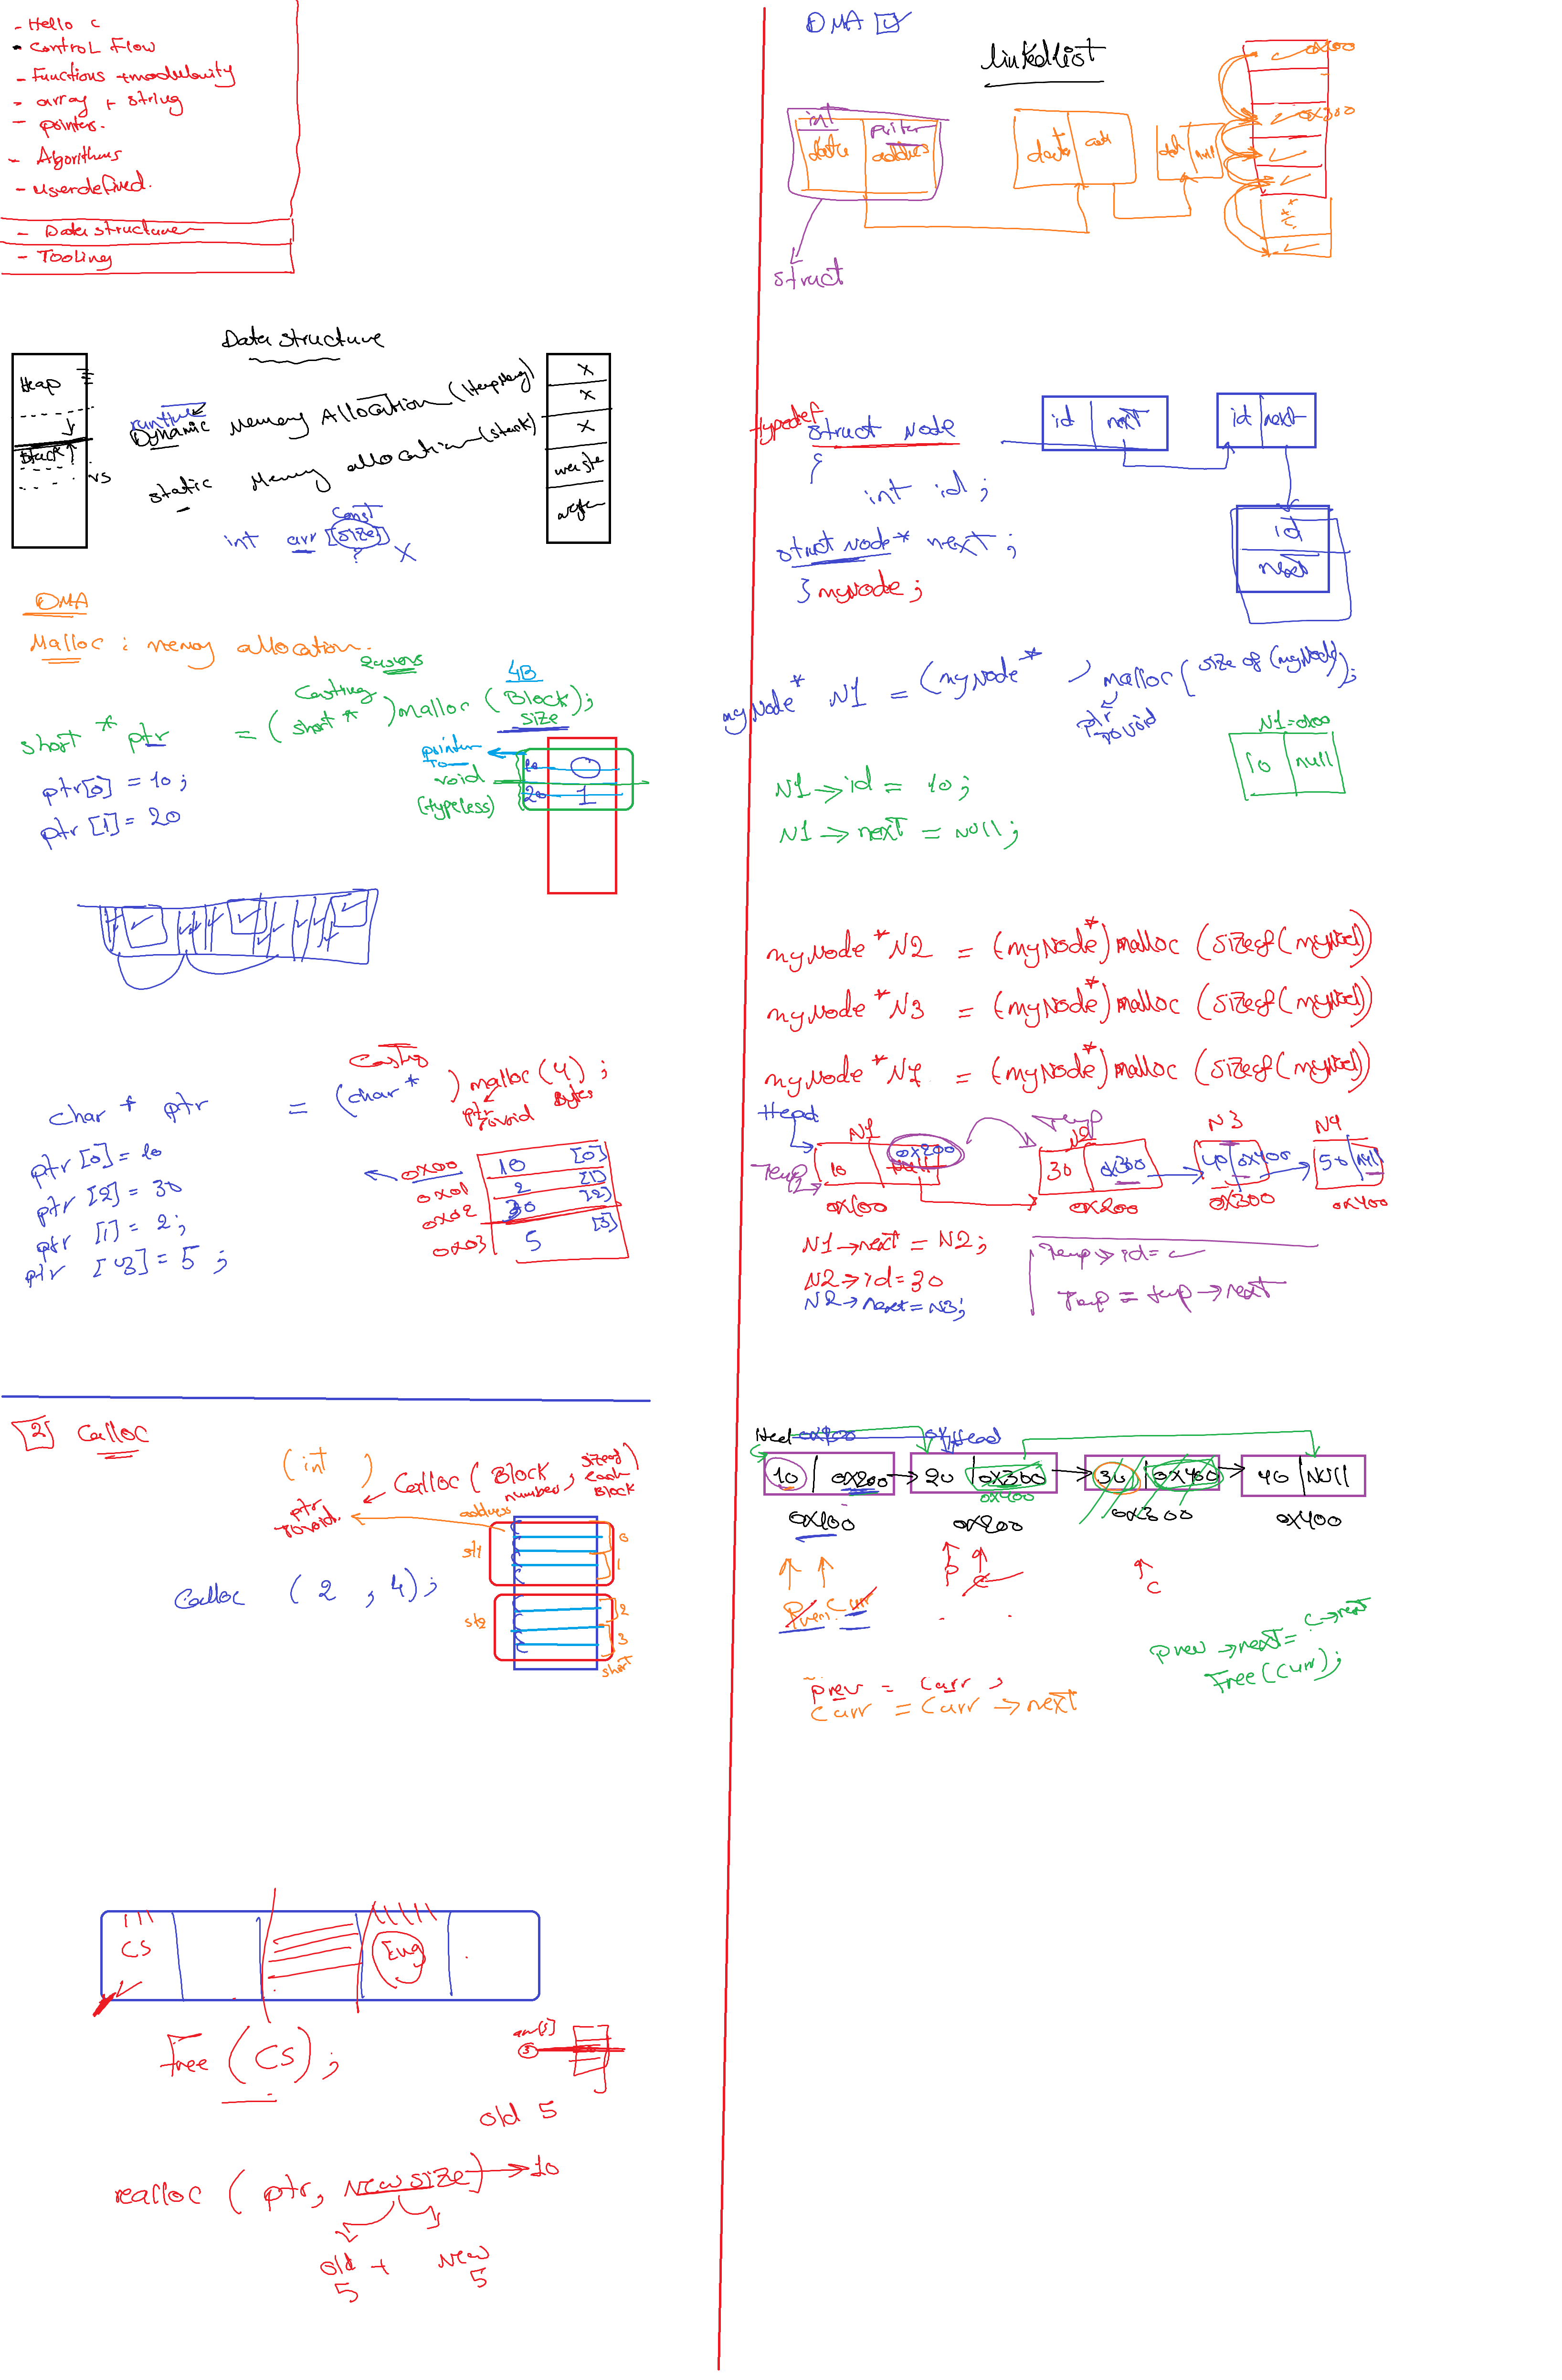 - Hello C
- Control Flow
- Functions + modularity
- array + string
- pointers.
- Algorithms
- userdefined.
- Data structure
- Tooling
Data structure
Heap
stack
vs
runtime
Dynamic Memory Allocation (Heap Memory)
static Memory allocation (stack)
const
int arr [size]
?
X
X
X
X
waste
DMA
Malloc : memory allocation.
Casting
4B
short * ptr = (short *) malloc (Block size);
ptr[0] = 10;
ptr [1] = 20
pointer
To
void
(typeless)
10 0
20 1
char * ptr = (char *) malloc (4);
ptr
To void
Bytes
ptr [0] = 10
ptr [2] = 30
ptr [1] = 2;
ptr [3] = 5;
0x00 10 [0]
0x01 2 [1]
0x02 30 [2]
0x03 5 [3]
2 Calloc
(int ) Calloc (Block number, sized each Block
ptr
To void.
address
st1
0
1
Calloc (2 , 4);
st2
2
3
short
CS
Eng
Free (CS);
arr[5]
5
old 5
realloc (ptr, New size) → 10
old + New
5 5
DMA
linked list
0x100
0x300
int pointer
data address
data add
null
struct
typedef
struct Node
{
int id;
struct Node* next;
} myNode;
id next
id next
id
next
myNode* N1 = (myNode* ) malloc (size of (myNode));
ptr
To void
N1=0x100
10 null
N1 → id = 10;
N1 → next = Null;
myNode* N2 = (myNode*) malloc (sizeof (myNode))
myNode* N3 = (myNode*) malloc (sizeof (myNode))
myNode* N4 = (myNode*) malloc (sizeof (myNode))
Head
Temp
N1
N2
N3
N4
Temp
10 0x200
30 0x300
40 0x400
50 Null
0x100
0x200
0x300
0x400
N1 → next = N2;
N2 → id = 30
N2 → next = N3;
Temp → id =
Temp = temp → next
Head
Head
10 0x200
20 0x300
30 0x400
40 NULL
0x400
0x100
0x200
0x300
0x400
P C
C
Prev Curr
prev = curr ;
Curr = Curr → next
prev → next = C → next
Free (Curr);